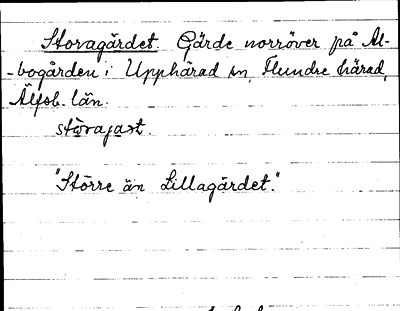 Storagärdet. Gärde norröver på Al-
-bogården i Upphärad sn, Flundre härad,
Älfsb. län.
störajaʂt.
"Större än Lillagärdet."